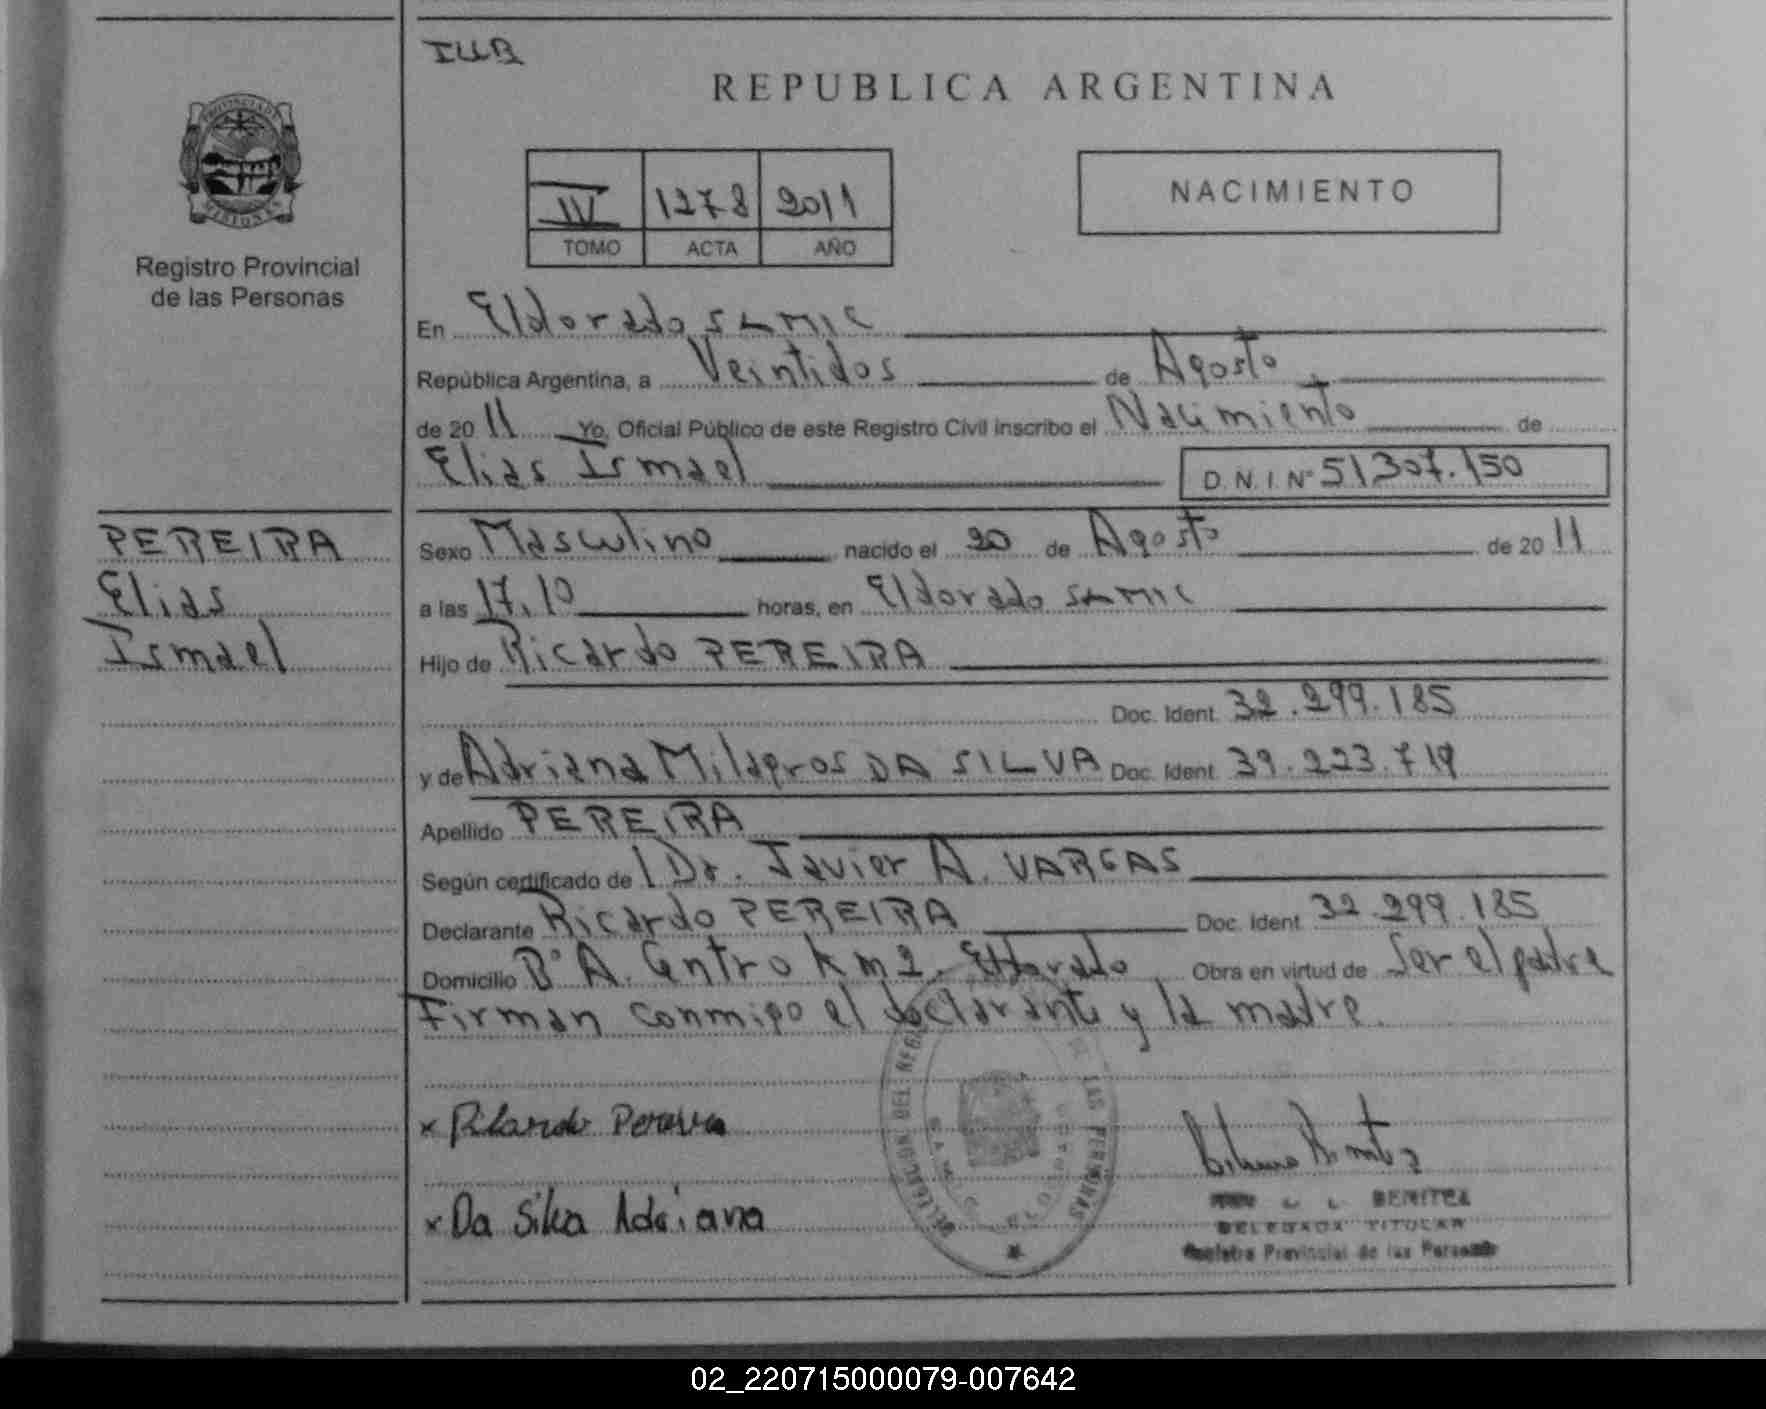 IUB
REPUBLICA ARGENTINA
PROVINCIA DE
MISIONES
IV 1278 2011
TOMO ACTA AÑO
NACIMIENTO
Registro Provincial
de las Personas
En Eldorado SAMIC
República Argentina, a Veintidos de Agosto
de 2011 Yo, Oficial Público de este Registro Civil inscribo el Nacimiento de
Elias Ismael D. N. I. Nº 51307.150
PEREIRA
Elias
Ismael
Sexo Masculino nacido el 20 de Agosto de 2011
a las 17.10 horas, en Eldorado SAMIC
Hijo de Ricardo PEREIRA
Doc. Ident. 32.299.185
y de Adriana Milagros DA SILVA Doc. Ident. 39.223.719
Apellido PEREIRA
Según certificado del Dr. Javier A. VARGAS
Declarante Ricardo PEREIRA Doc. Ident. 32.299.185
Domicilio Bº A. Centro Km 2. Eldorado Obra en virtud de Ser el padre
Firman conmigo el declarante y la madre.
x Ricardo Pereira
x Da Silva Adriana
DELEGACION DEL REG DE LAS PERSONAS
BENITEZ
DELEGADA TITULAR
Registro Provincial de las Personas
02_220715000079-007642